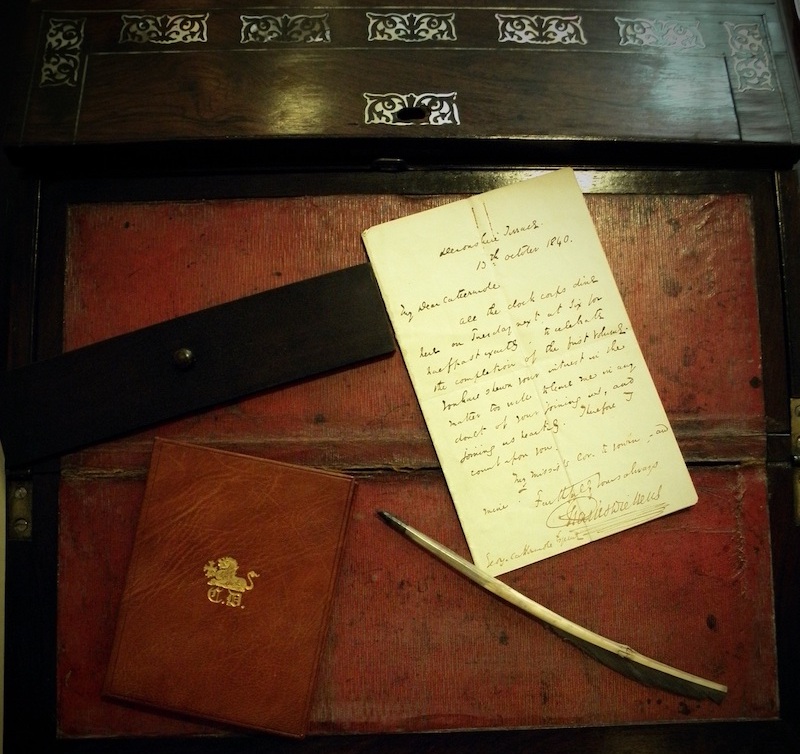 Devonshire Terrace
13th October 1840.
My Dear Cattermole.
all the clock corps dine
here on Tuesday next at Six for
half past exactly: to celebrate
the completion of the first Volume.
You have shewn your interest in the
matter too well to leave me in any
doubt of your joining us, and
joining us heartily. Therefore I
count upon you.
My missis's Cor. to yours, – and
mine. Faithfully Yours always
Charles Dickens
George Cattermole Esquire
C.D.